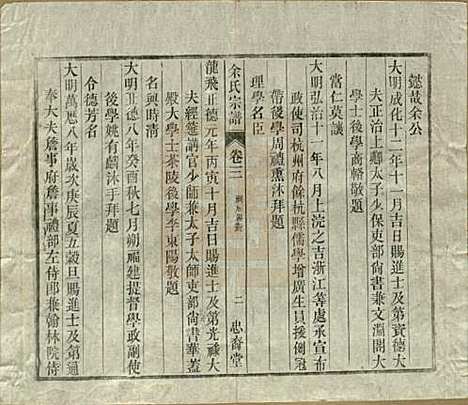 懿哉余公
大明成化十二年十一月吉日賜進士及第資德大
夫正治上卿太子少保吏部尙書兼文淵閣大
學士後學商輅敬題
當仁莫議
大明弘治十一年八月上浣之吉浙江等處承宣布
政使司杭州府餘杭縣儒學增廣生員援例冠
帶後學周禮熏沐拜題
理學名臣
余氏宗譜
卷三
二
忠裔堂
龍飛正德元年丙寅十月吉日賜進士及第光祿大
夫經筵講官少師兼太子太師吏部尙書華蓋
殿大學士茶陵後學李東陽敬題
名興時淸
大明正德八年癸酉秋七月朔福建提督學政副使
後學姚有麟沐手拜題
令德芳名
大明萬歷八年歲次庚辰夏五穀旦賜進士及第通
奉大夫詹事府詹事禮部左侍郎兼翰林院侍